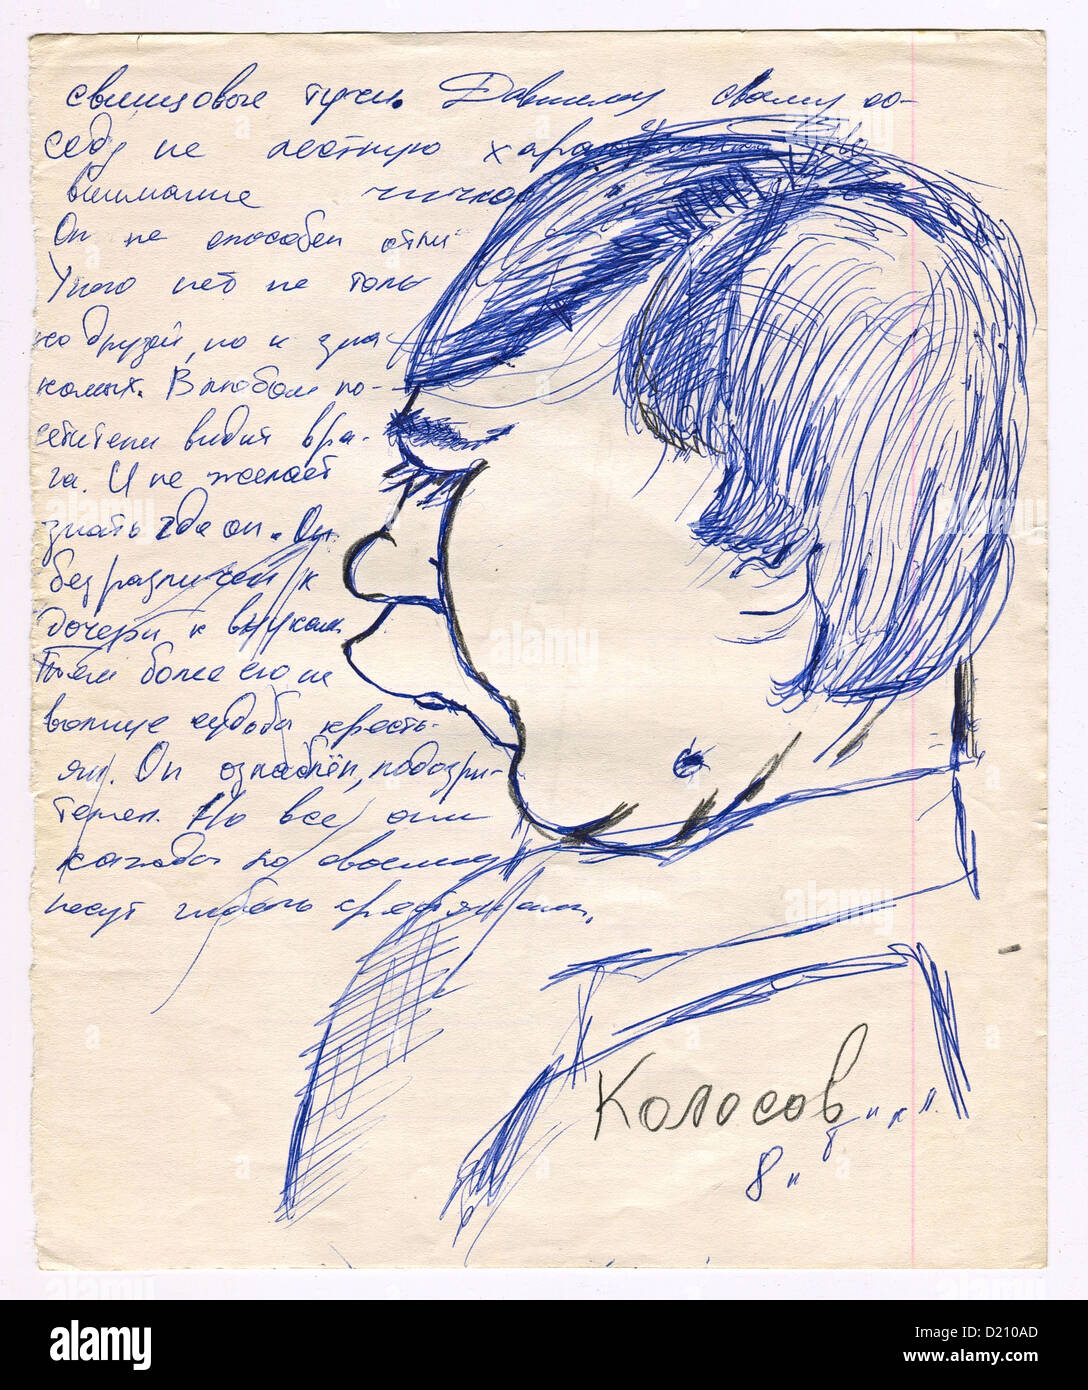 свинцовые тучи. Давшему своему со-
седу не лестную
внимание
Он не способен
У него нет не толь
ко друзей, но и зна-
комых. В любом по-
сетителе видит вра-
га. И не желает
знать где он. Он
безразличен к
дочери, к внукам.
Тем более его не
волнует судьба кресть-
ян. Он озлоблен, подозри-
телен. Но все они
каждый по своему
несут гибель крестьянам.
Колосов
8 "
alamy
Image ID: D210AD
www.alamy.com